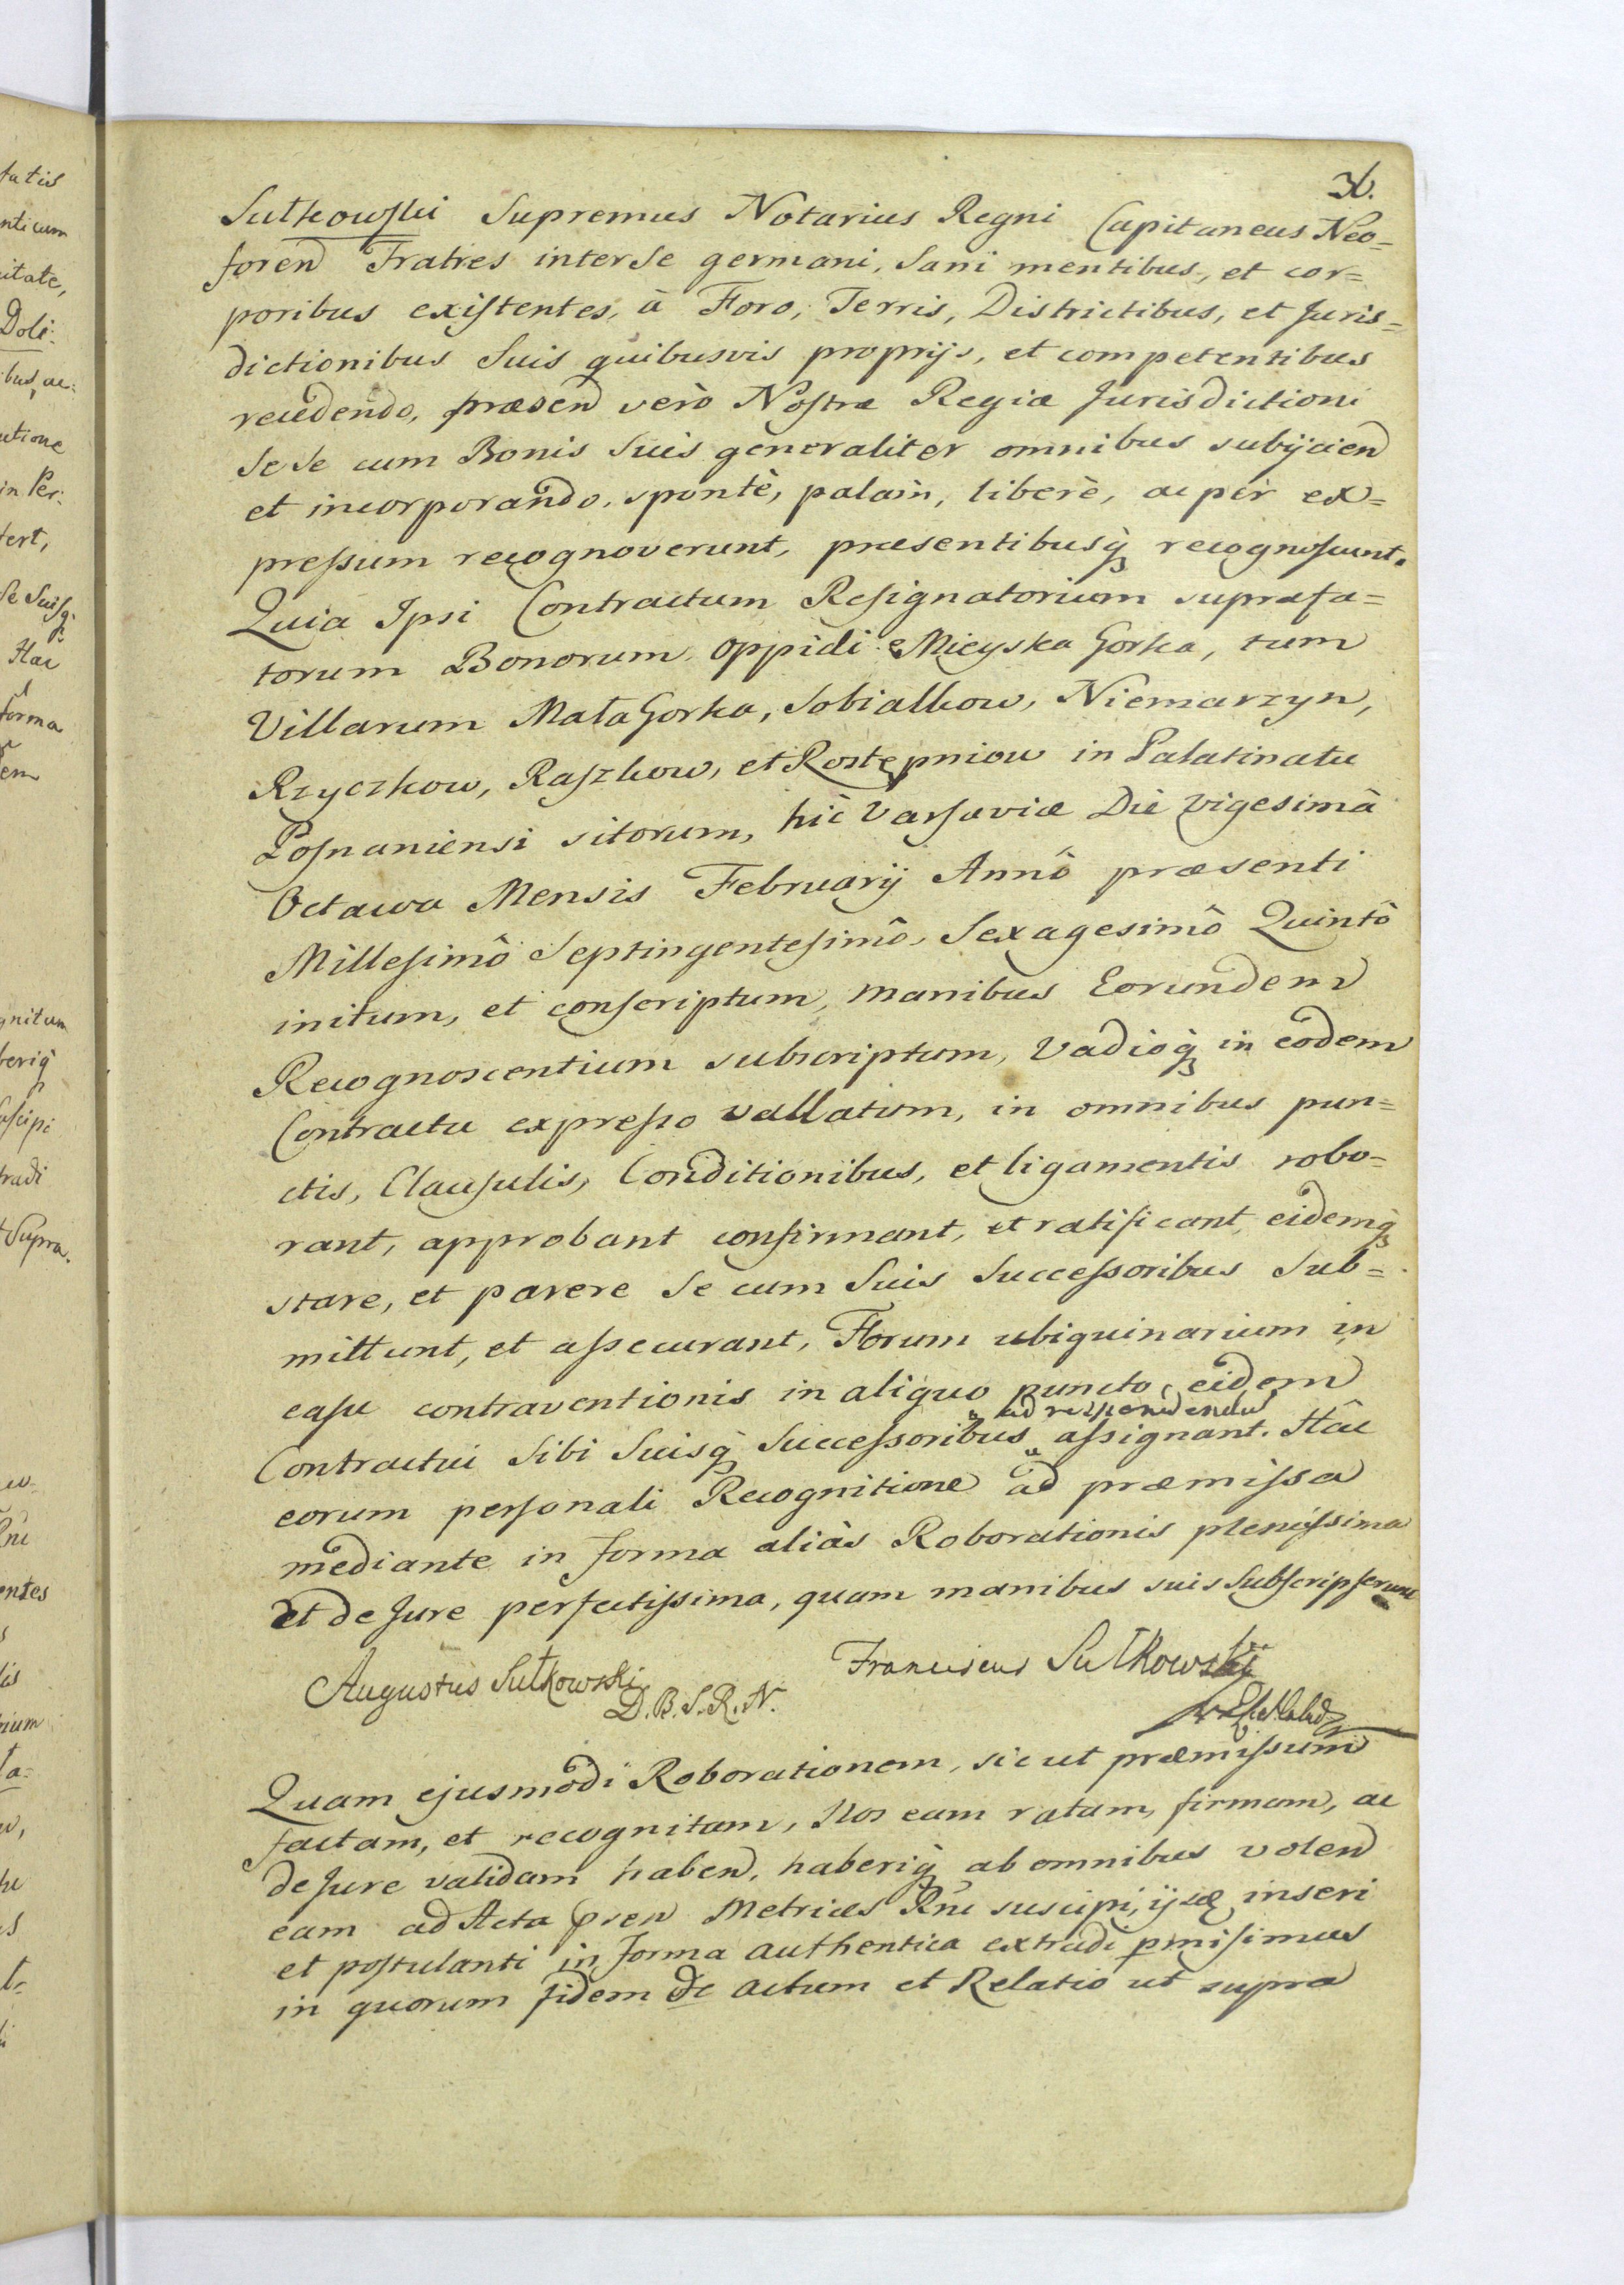 36.
Sułkowski Supremus Notarius Regni Capitaneus Neo=
foren Fratres inter se germani, sani mentibus, et cor=
poribus existentes, à Foro, Terris, Districtibus, et Juris=
dictionibus Suis quibusvis proprijs, et competentibus
recedendo, præsen verò Nostræ Regiæ Jurisdictioni
Se se cum Bonis Suis generaliter omnibus subijcien
et incorporando, spontè, palàm, liberè, ac per ex=
pressum recognoverunt, præsentibusq recognoscunt.
Quia Ipsi Contractum Resignatorium suprafa=
torum Bonorum oppidi Mieyska Gorka, tum
Villarum Mała Gorka, Sobiałkow, Niemarzyn,
Rzyczkow, Raszkow, et Rostępniow in Palatinatu
Posnaniensi sitorum, hìc Varsaviæ Die vigesimâ
Octawa Mensis Februarij Annô præsenti
Millesimô Septingentesimô, Sexagesimô Quintô
initum, et conscriptum, manibus Eorundem
Recognoscentium subscriptum, Vadioq in eodem
Contractu expresso vallatum, in omnibus pun=
ctis, Clausulis, Conditionibus, et ligamentis robo=
rant, approbant confirmant, et ratificant, eidemq
stare, et parere se cum Suis Successoribus Sub=
mittunt, et assecurant, Forum ubiquinarium in
casu contraventionis in aliquo puncto, eidem
ad respondendum
Contractui Sibi Suisq Successoribus assignant. Hâc
eorum personali Recognitione ad præmissa
mediante in forma aliàs Roborationis plenissima
et de Jure perfectissima, quam manibus suis Subscripserunt
Augustus Sułkowski Franciscus Sułkowski
D. B. S. R. N.
Quam ejusmodi Roborationem, sicut præmissum
factam, et recognitam, Nos eam ratam, firmam, ac
de Jure validam haben, haberiq ab omnibus volen
eam ad Acta pren Metrices Rni suscipi, ijsq inseri
et postulanti in forma authentica extradi pmisimus
in quorum fidem &c actum et Relatio ut supra